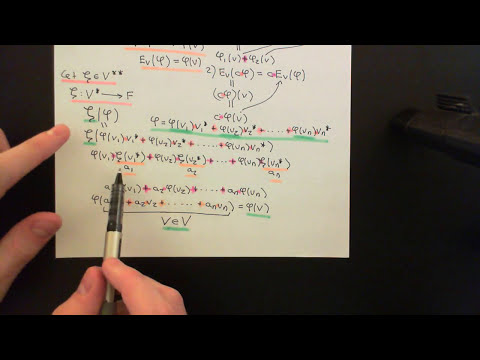 φ₁(v)+φ₂(v)
E_v(φ)=φ(v)
2) E_v(cφ) = cE_v(φ)
Let ξ∈V**
(cφ)(v)
ξ: V* ⟶ F
c·φ(v)
ξ(φ)
φ = φ(v₁)v₁* + φ(v₂)v₂* + ······ + φ(vₙ)vₙ*
ξ(φ(v₁)v₁* + φ(v₂)v₂* + ······ + φ(vₙ)vₙ*)
φ(v₁)ξ(v₁*) + φ(v₂)ξ(v₂*) + ······ + φ(vₙ)ξ(vₙ*)
a₁ a₂ aₙ
(v₁) + a₂φ(v₂) + ······ + aₙφ(vₙ)
φ(a + a₂v₂ + ······ + aₙvₙ) = φ(v)
V∈V